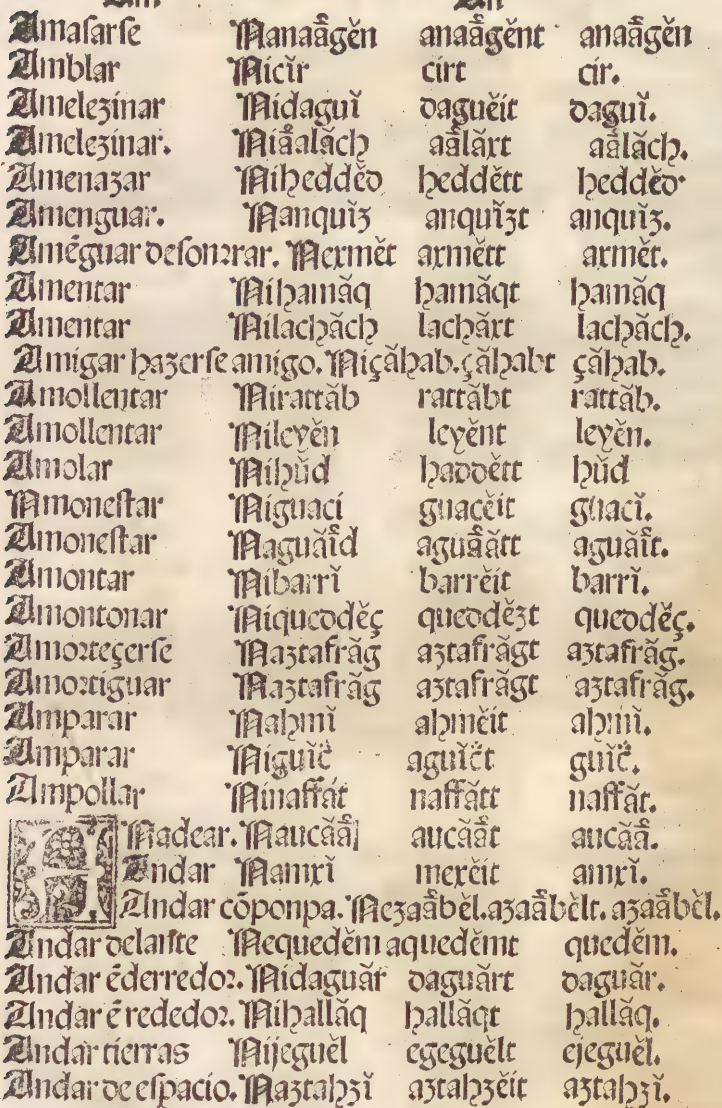 Amasarse Nanaâgĕn anaâgĕnt anaâgĕn
Amblar Nicĭr cirt cir.
Amelezinar Nidaguĭ daguĕit daguĭ.
Amelezinar. Niâalăch aâlăxt aâlăch.
Amenazar Niheddĕd heddĕtt heddĕd
Amenguar. Nanquĭz anquĭzt anquĭz.
Amẽguar desonrrar. Nexmĕt axmĕtt axmĕt.
Amentar Nihamăq hamăqt hamăq
Amentar Nilachăch lachăxt lachăch.
Amigar hazerse amigo. Niçăhab. çăhabt çăhab.
Amollentar Nirattăb rattăbt rattăb.
Amollentar Nileyĕn leyĕnt leyĕn.
Amolar Nihŭd haddĕtt hŭd
Amonestar Niguaci guacĕit guacĭ.
Amonestar Naguăîd aguăâtt aguăît.
Amontar Nibarrĭ barrĕit barrĭ.
Amontonar Niqueddĕç queddĕzt queddĕç.
Amorteçerse Naztafrăg aztafrăgt aztafrăg.
Amortiguar Naztafrăg aztafrăgt aztafrăg.
Amparar Nahmĭ ahmĕit ahmĭ.
Amparar Niguĭĉ aguĭĉt guĭĉ.
Ampollar Ninaffăt naffătt naffăt.
Anadear. Naucăâ aucăât aucăâ.
Andar Namxĭ mexĕit amxĭ.
Andar cõ ponpa. Nezaâbĕl. azaâbĕlt. azaâbĕl.
Andar delante Nequedĕm aquedĕmt quedĕm.
Andar ẽ derredor. Nidaguăr daguărt daguăr.
Andar ẽ rededor. Nihallăq hallăqt hallăq.
Andar tierras Nijeguĕl egeguĕlt ejeguĕl.
Andar de espacio. Naztahzĭ aztahzĕit aztahzĭ.